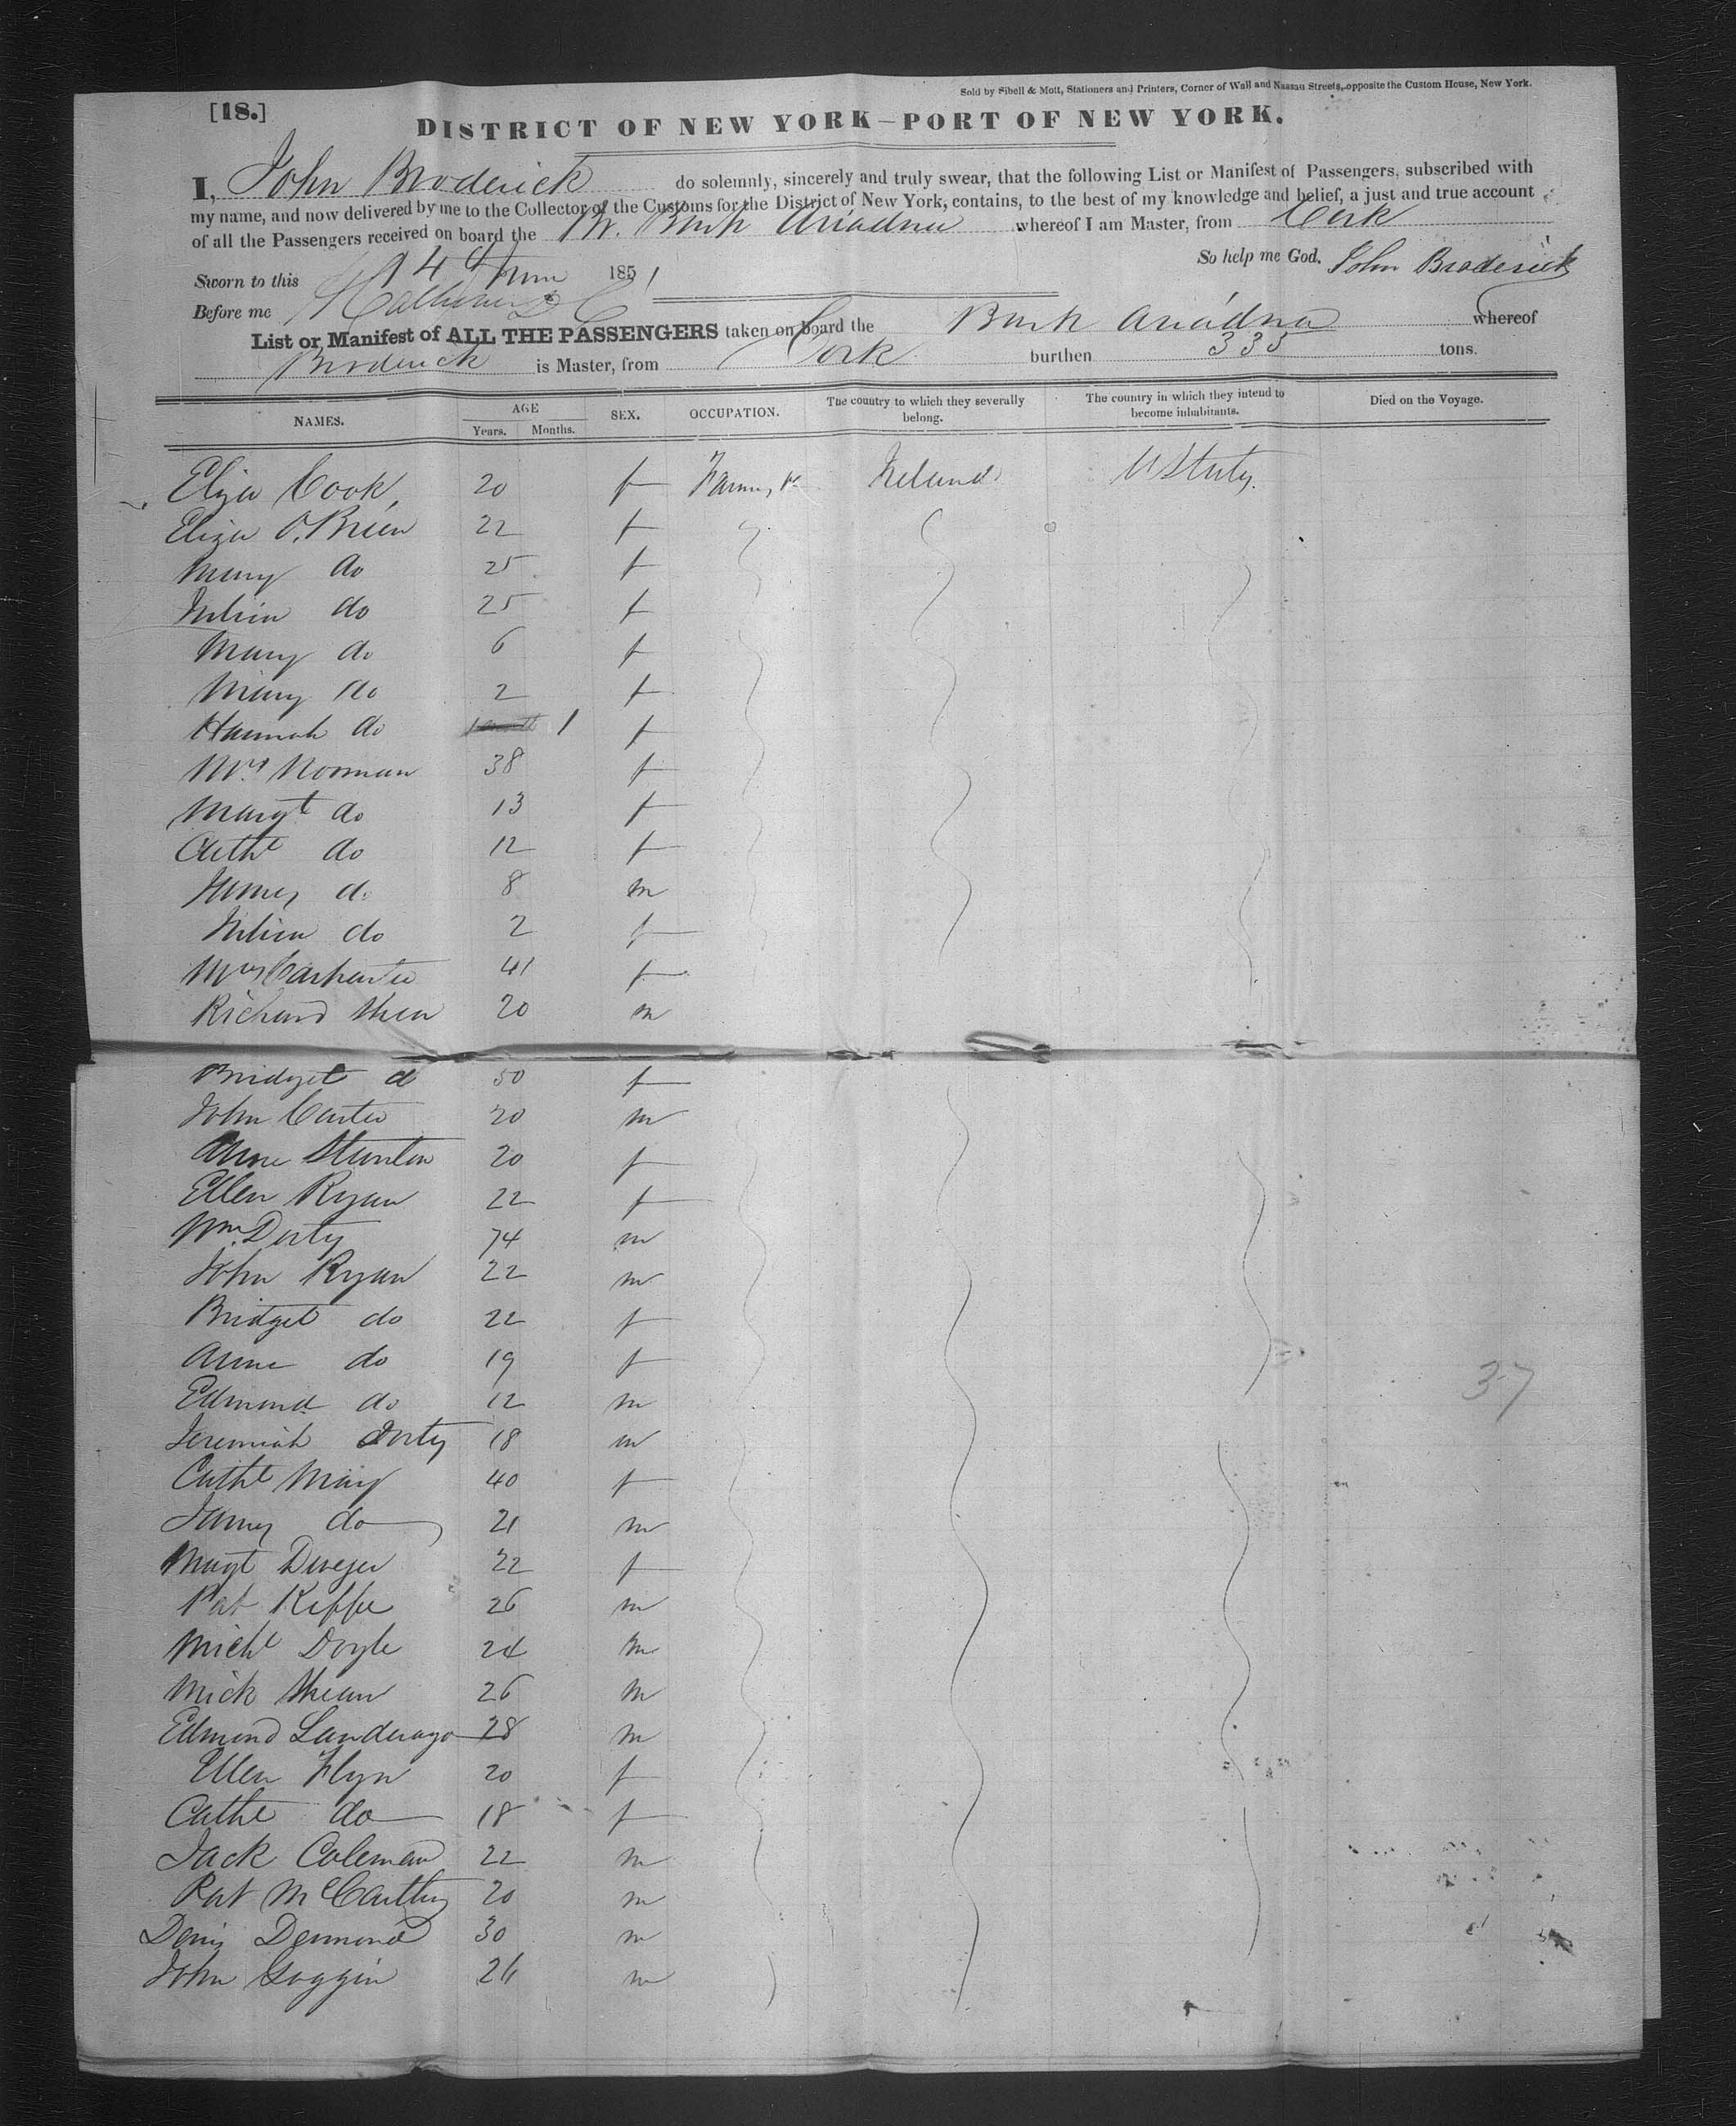 Sold by Sibell & Mott, Stationers and Printers, Corner of Wall and Nassau Streets, opposite the Custom House, New York.
[18.]
DISTRICT OF NEW YORK—PORT OF NEW YORK.
I, John Broderick do solemnly, sincerely and truly swear, that the following List or Manifest of Passengers, subscribed with
my name, and now delivered by me to the Collector of the Customs for the District of New York, contains, to the best of my knowledge and belief, a just and true account
of all the Passengers received on board the Br. Bark Ariadna whereof I am Master, from Cork
So help me God. John Broderick
Sworn to this 14 June 1851
Before me
List or Manifest of ALL THE PASSENGERS taken on board the Bark Ariadna whereof
Broderick is Master, from Cork burthen 335 tons.
NAMES. AGE Years. Months. SEX. OCCUPATION. The country to which they severally belong. The country in which they intend to become inhabitants. Died on the Voyage.
Eliza Cook 20 f Ireland U States
Eliza O.Brien 22 f
Mary do 25 f
Julia do 25 f
Mary do 6 f
Mary do 2 f
Hannah do 1 f
Mrs Noonan 38 f
Margt do 13 f
Cathe do 12 f
James do 8 m
Julia do 2 f
Mrs Carpenter 41 f
Richard Shea 20 m
Bridget d 50 f
John Carter 20 m
Anne Stanton 20 f
Ellen Ryan 22 f
Wm. Dorty 74 m
John Ryan 22 m
Bridget do 22 f
Anne do 19 f
Edmond do 12 m
37
Jeremiah Dorty 18 m
Cathe May 40 f
James do 21 m
Margt 22 f
Pat Keffe 26 m
Michl Doyle 24 m
Mick Shean 26 m
Edmond 28 m
Ellen Flyn 20 f
Cathe do 18 f
Jack Coleman 22 m
Pat McCarthy 20 m
Denis Desmond 30 m
John Goggin 26 m